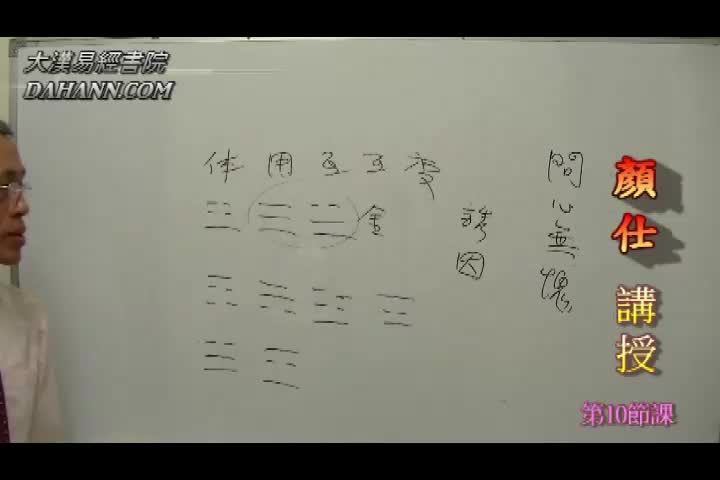 大漢易經書院
DAHANN.COM
体 用 互 互 變
金
誘因
問心無愧
顏仕 講授
第10節課